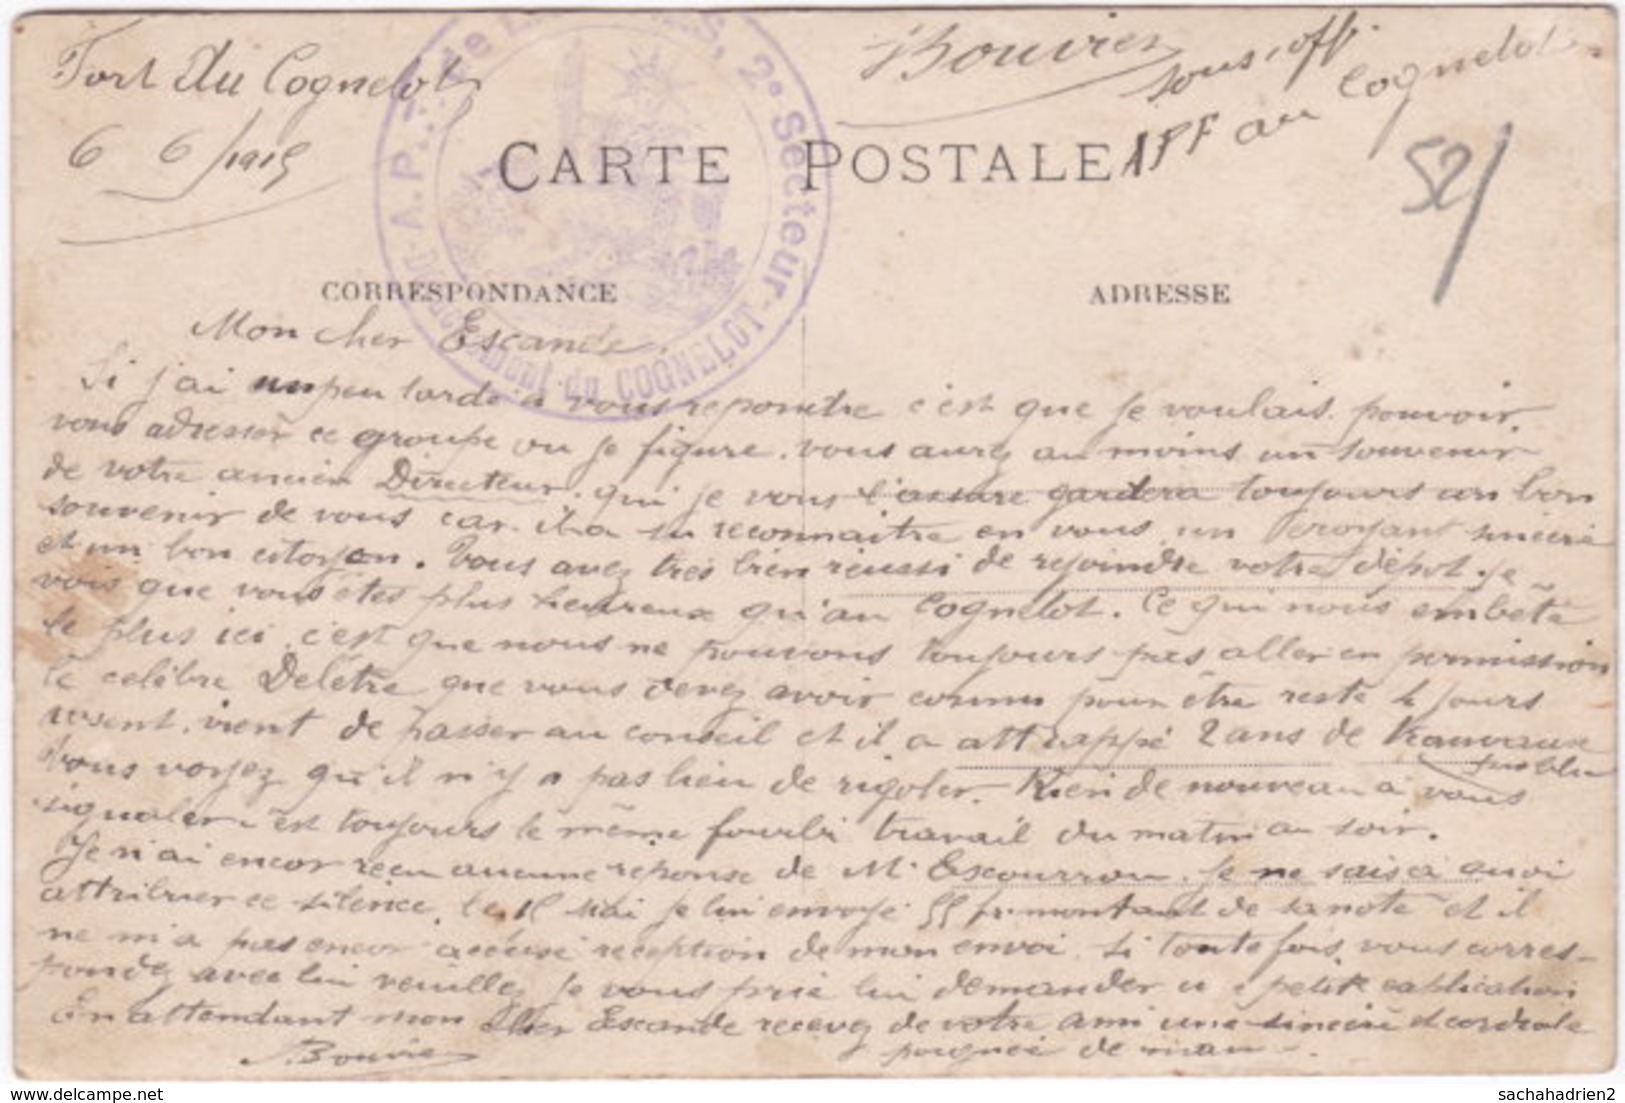 Fort du Cognelot
6 6/1915
Bouvier
sous-off
APF au Cognelot
52/
A.P.F. de LANGRES, 2e Secteur
Détachement du COGNELOT
CARTE POSTALE
CORRESPONDANCE
ADRESSE
Mon cher Escande,
Si j'ai un peu tardé a vous repondre c'est que je voulais pouvoir
vous adresser ce groupe ou je figure. vous aurez au moins un souvenir
de votre ancien Directeur. qui je vous l'assure gardera toujours un bon
souvenir de vous car il a su reconnaitre en vous un croyant sincère
et un bon citoyen. Vous avez très bien réussi de rejoindre votre dépot. je
vois que vous êtes plus heureux qu'au Cognelot. Ce qui nous embête
le plus ici, c'est que nous ne pouvons toujours pas aller en permission
le celèbre Delétre que vous devez avoir connu pour être resté 4 jours
absent. vient de passer au conseil et il a attrappé 2 ans de travaux
publics
Vous voyez qu'il n'y a pas lieu de rigoler. Rien de nouveau a vous
signaler c'est toujours le même fourbi travail du matin au soir.
Je n'ai encor reçu aucune réponse de Mr Escourrou. je ne sais à quoi
attribuer ce silence. le 15 Mai je lui envoyé 55 fr. montant de sa note et il
ne m'a pas encor accusé reception de mon envoi. Si toutefois vous corres-
pondez avec lui veuillez je vous prie lui demander une petite explication
En attendant mon Cher Escande recevez de votre ami une sincère et cordiale
poignée de main.
Bouvier
sachahadrien2